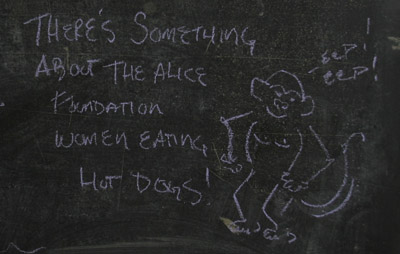 THERE'S SOMETHING
ABOUT THE ALICE
FUNDATION
WOMEN EATING
HOT DOGS!
EEP!
EEP!